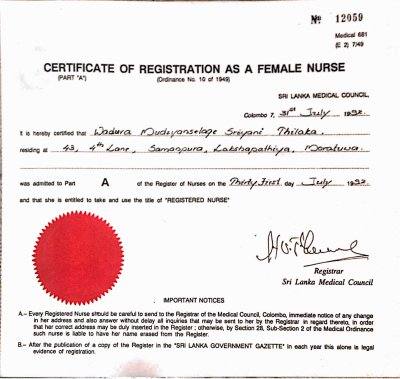 № 12059
Medical 681
(E 2) 7/49
CERTIFICATE OF REGISTRATION AS A FEMALE NURSE
(PART "A") (Ordinance No. 10 of 1949)
SRI LANKA MEDICAL COUNCIL,
Colombo 7, 31st July 1992.
It is hereby certified that Wadura Mudiyanselage Sriyani Thilaka
residing at 43, 4th Lane, Samanpura, Lakshapathiya, Moratuwa.
was admitted to Part A of the Register of Nurses on the Thirty First day July 1992
and that she is entitled to take and use the title of "REGISTERED NURSE"
Registrar
Sri Lanka Medical Council
IMPORTANT NOTICES
A.– Every Registered Nurse should be careful to send to the Registrar of the Medical Council, Colombo, immediate notice of any change
in her address and also answer without delay all inquiries that may be sent to her by the Registrar in regard thereto, in order
that her correct address may be duly inserted in the Register ; otherwise, by Section 28, Sub-Section 2 of the Medical Ordinance
such nurse is liable to have her name erased from the Register.
B.– After the publication of a copy of the Register in the "SRI LANKA GOVERNMENT GAZETTE" in each year this alone is legal
evidence of registration.